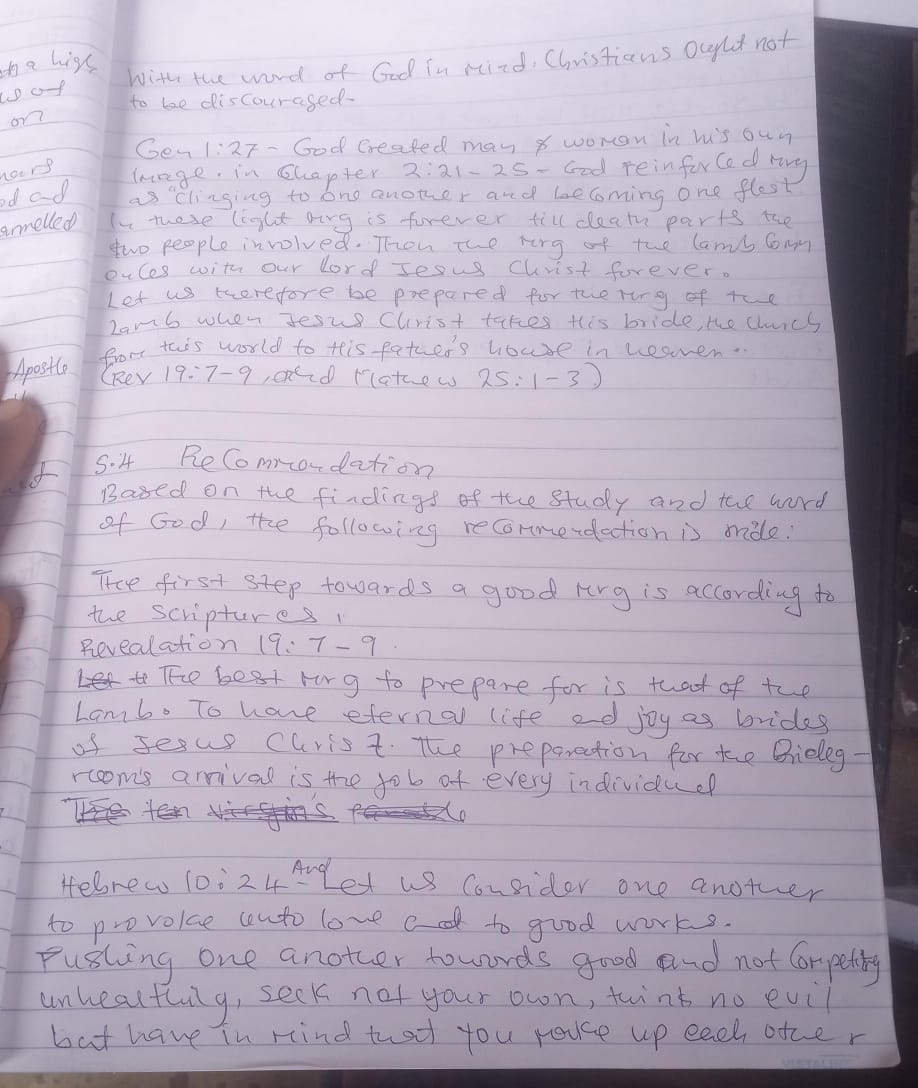 th a high
us of
on
hours
od and
annelled
Apostle
With the word of God in mind, Christians Ought not
to be discouraged.
Gen 1:27 - God Created man & woman in his own
image. in Chapter 2:21-25 - God reinforced mrg
as "clinging to one another and becoming one flesh
In these light mrg is forever till death parts the
two people involved. Then the mrg of the lamb Comm
ences with our Lord Jesus Christ forever.
Let us therefore be prepared for the mrg of the
Lamb when Jesus Christ takes His bride, the church
from this world to His father's house in heaven..
(Rev 19:7-9, and Mathew 25:1-3)
5.4 ReCommendation
Based on the findings of the Study and the word
of God, the following recommendation is made:
The first step towards a good mrg is according to
the scriptures,
Revealation 19:7-9.
Let The best mrg to prepare for is that of the
Lamb. To have eternal life and joy as brides
of Jesus Christ. The preparation for the Brideg-
room's arrival is the job of every individual
The ten virgin's
Hebrew 10:24 - And Let us Consider one another
to provoke unto love and to good works.
Pushing one another towards good and not Competing
unhealthily, seek not your own, think no evil
but have in mind that you make up each other